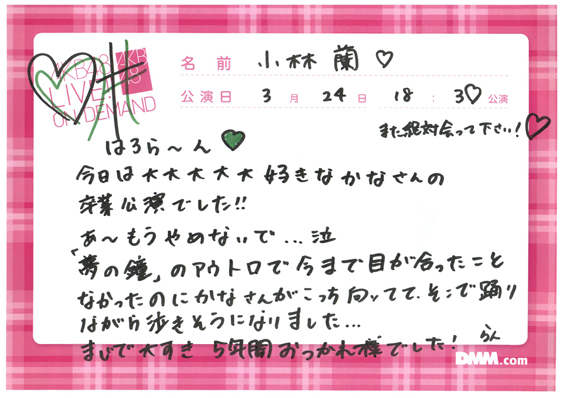 AKB48
LIVE!!
ON DEMAND
AKB
48
名前 小林 蘭♡
公演日 3月24日 18:30公演
また絶対会って下さい!♡
はろら〜ん
今日は大大大大大好きなかなさんの
卒業公演でした!!
あ〜もうやめないで...泣
「夢の鐘」のアウトロで今まで目が合ったこと
なかったのにかなさんがこっち向ッてて、そこで踊り
ながら歩きそうになりました...
まじで大すき 5年間おつかれ様でした!
らん
DMM.com